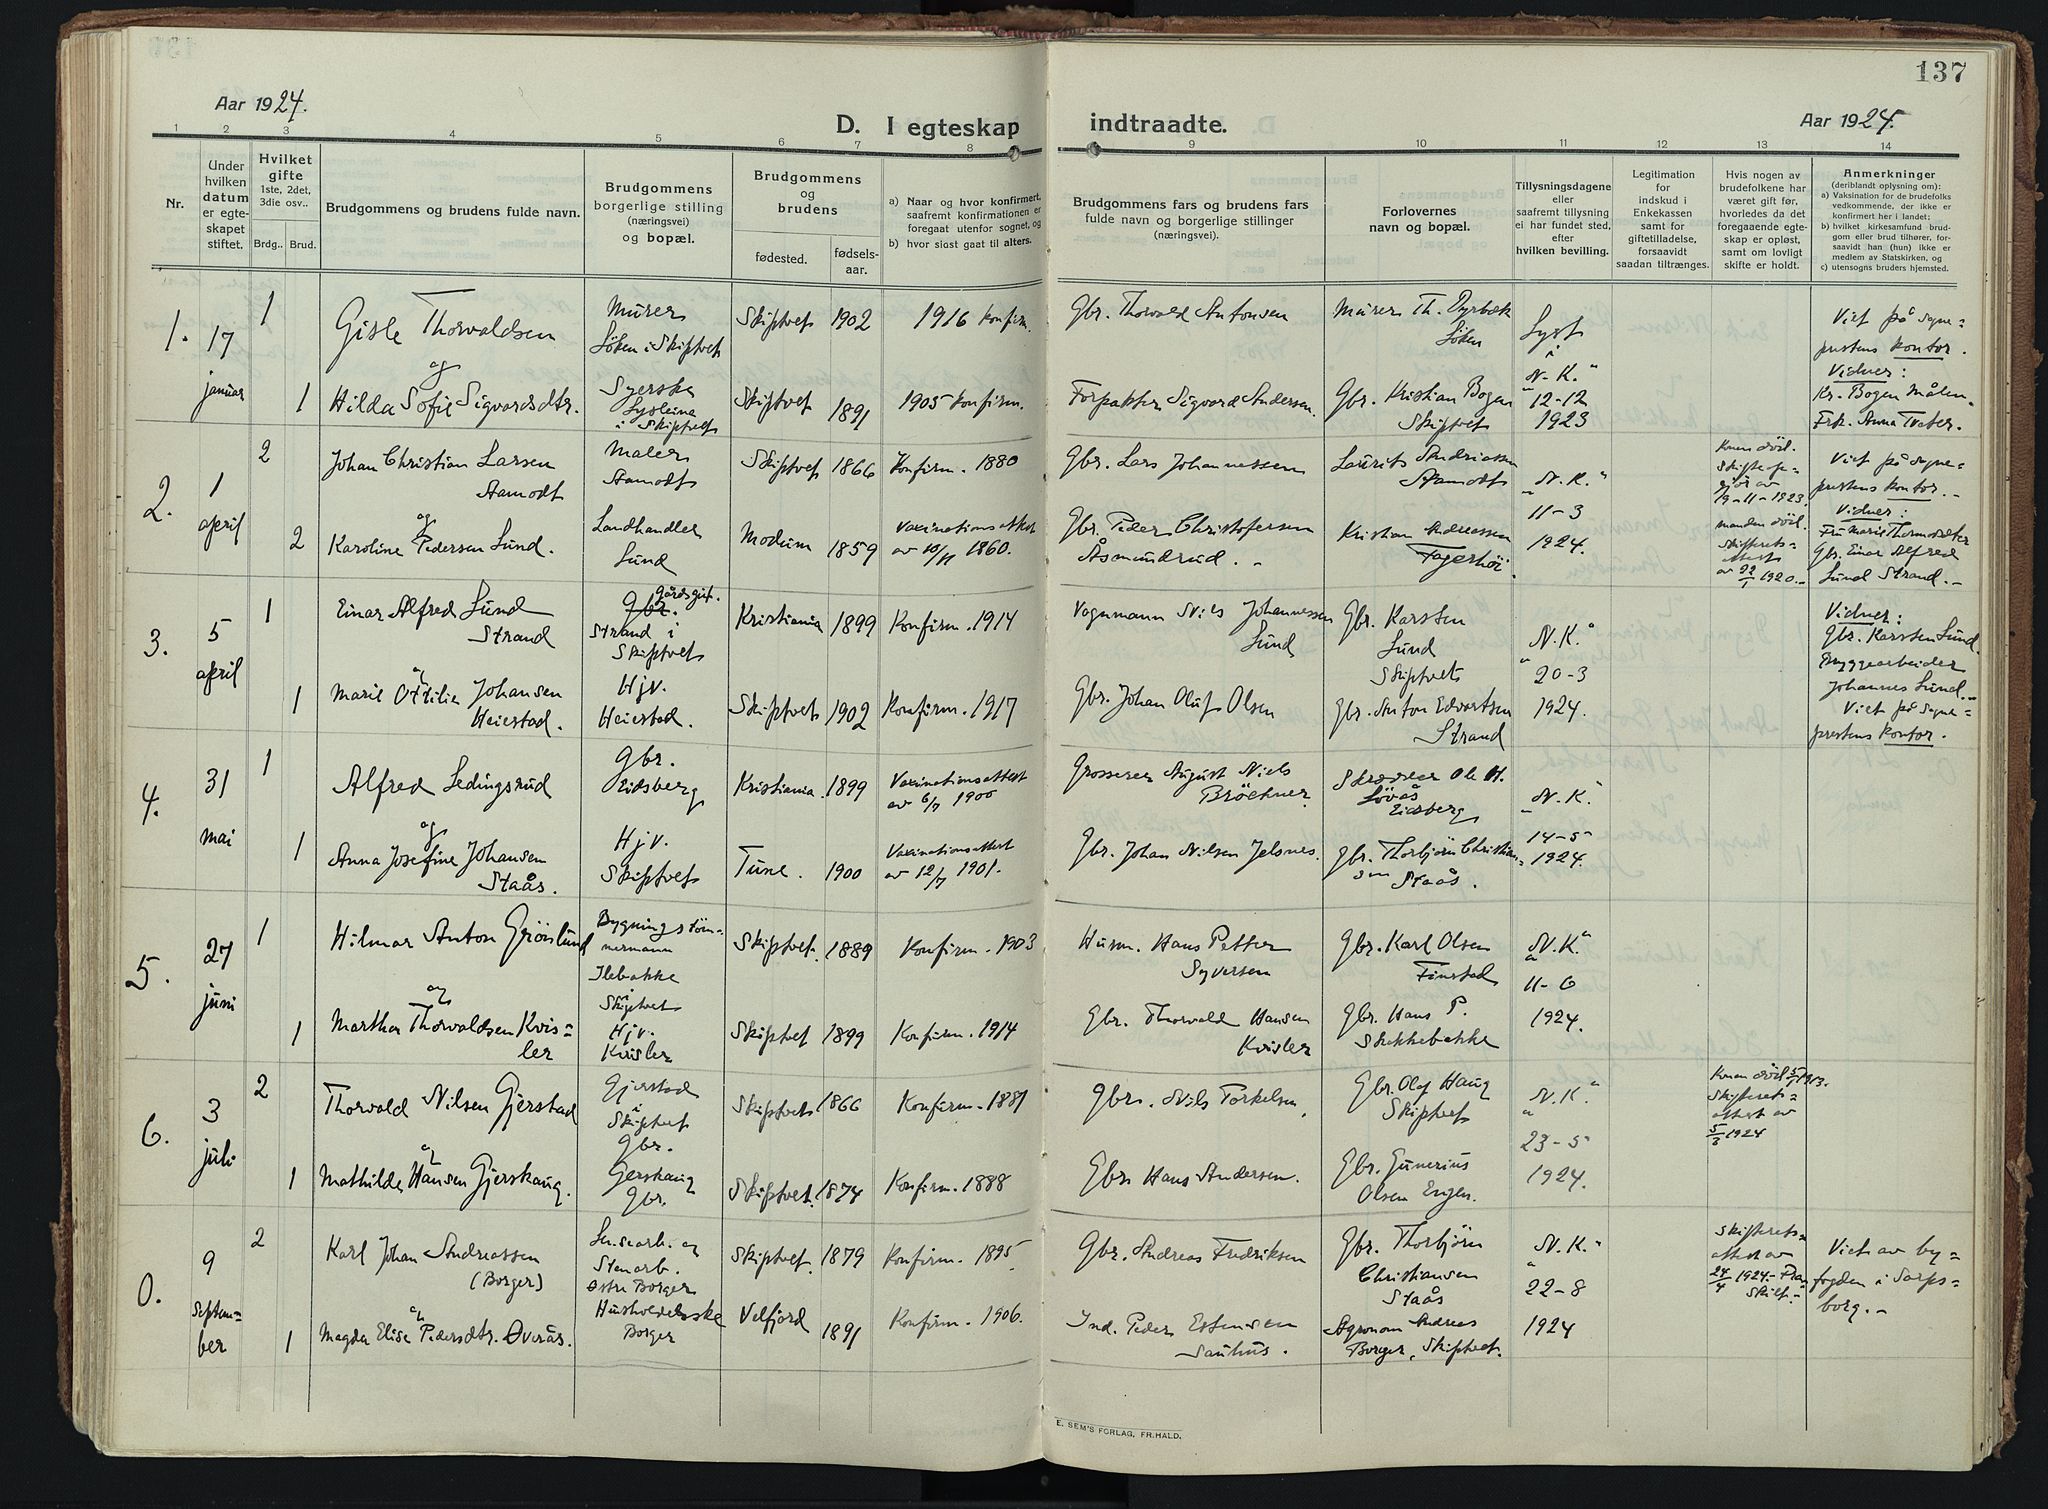 137
Aar 1924.
D. I egteskap
indtraadte.
Aar 1924.
1 2 3 4 5 6 7 8 9 10 11 12 13 14
Nr.
Under
hvilken
datum
er egte-
skapet
stiftet.
Hvilket
gifte
1ste, 2det,
3die osv..
Brdg.. Brud.
Brudgommens og brudens fulde navn.
Brudgommens
borgerlige stilling
(næringsvei)
og bopæl.
Brudgommens
og
brudens
fødested.
fødsels-
aar.
a) Naar og hvor konfirmert,
saafremt konfirmationen er
foregaat utenfor sognet, og
b) hvor sidst gaat til alters.
Brudgommens fars og brudens fars
fulde navn og borgerlige stillinger
(næringsvei).
Forlovernes
navn og bopæl.
Tillysningsdagene
eller
saafremt tillysning
ei har fundet sted,
efter
hvilken bevilling.
Legitimation
for
indskud i
Enkekassen
samt for
giftetilladelse,
forsaavidt
saadan tiltrænges.
Hvis nogen av
brudefolkene har
været gift før,
hvorledes da det
foregaaende egte-
skap er opløst,
samt om lovligt
skifte er holdt.
Anmerkninger
(deriblandt oplysning om):
a) Vaksination for de brudefolks
vedkommende, der ikke er
konfirmert her i landet;
b) hvilket kirkesamfund brud-
gom eller brud tilhører, for-
saavidt han (hun) ikke er
medlem av Statskirken, og
c) utensogns bruders hjemsted.
1. 17
januar
1
Gisle Thorvaldsen
og
Murer
Løken i Skiptvet
Skiptvet 1902
1916 konfirm.
Gbr. Thorvald Antonsen
Murer Th. Dyrbæk
Løken
Lyst
i
"N.K."
12-12
1923
Viet på sogne-
prestens kontor.
Vidner:
Kr. Bogen Målen.
Frk. Anna Tveter.
1 Hilda Sofie Sigvardsdtr.
Syerske
i Skiptvet
Skiptvet 1891
1905 konfirm.
Forpakter Sigvard Andersen.
Gbr. Kristian Bogen
Skiptvet
2. 1
april
2
Johan Christian Larsen
Aamodt
og
Maler
Aamodt
Skiptvet 1866
Konfirm. 1880
Gbr. Lars Johannessen
Laurits Andreassen
Aamodt
"N.K."
11-3
1924.
Konen död.
19-11-1923
Viet på sogne-
prestens kontor.-
Vidner:
Gbr. Einar Alfred
Lund Strand.-
2 Karoline Pedersen Lund.
Landhandler
Lund
Modum 1859
Vaxinationsattest
av 10/11 1860.
Gbr. Peder Christofersen
Åsmundrud.
Kristian Andreassen
Fagerhöi.
manden död.
Skifterets-
attest
av 22/1 1920.-
3. 5
april
1
Einar Alfred Lund
Strand
og
Gbr. gårdsgut.
Strand i
Skiptvet
Kristiania 1899
Konfirm. 1914
Vognmann Nils Johannessen
Lund
Gbr. Karsten
Lund
Skiptvet
"N.K."
20-3
1924.
Vidner:
Gbr. Karsten Lund.
Byggearbeider
Johannes Lund.-
Viet på sogne-
prestens kontor.
1 Marie Ottilie Johansen
Heiestad.
Hjv.
Heiestad.
Skiptvet 1902
Konfirm. 1917
Gbr. Johan Oluf Olsen
Gbr. Anton Edvartsen
Strand
4. 31
mai
1
Alfred Ledingsrud
og
Gbr.
Eidsberg
Kristiania. 1899
Vaxinationsattest
av 6/7 1900
Grosserer August Niels
Bröchner
Skrædder Ole H.
Lövås
Eidsberg
"N.K."
14-5
1924.
1 Anna Josefine Johansen
Staås.
Hjv.
Skiptvet
Tune. 1900
Vaxinationsattest
av 12/7 1901.
Gbr. Johan Nilsen Jelsnes.
Gbr. Thorbjörn Christian-
sen Staås.
5. 27
juni
1
Hilmar Anton Grönlund
og
Bygningstöm-
mermann
Ilebakke
i
Skiptvet
Skiptvet. 1889
Konfirm. 1903
Husm. Hans Petter
Syversen
Gbr. Karl Olsen
Finstad
"N.K."
11-6
1924.
1 Martha Thorvaldsen Kvis-
ler
Hjv.
Kvisler
Skiptvet 1899
Konfirm. 1914
Gbr. Thorvald Hansen
Kvisler
Gbr. Hans P.
Skakkebakke
6. 3
juli
2
Thorvald Nilsen Gjerstad
og
Gjerstad
i
Skiptvet
Gbr.
Skiptvet 1866
Konfirm. 1881
Gbr. Nils Torkelsen
Gbr. Olaf Haug
Skiptvet
"N.K."
23-5
1924.
Konen död 5/1 1913.
Skifterets-
attest av
5/3 1924
1 Mathilde Hansen Gjerskaug.
Gerskaug
Gbr.
Skiptvet. 1874
Konfirm. 1888
Gbr. Hans Andersen.
Gbr. Gunerius
Olsen Engen.
0. 9
Septem-
ber
2
Karl Johan Andreassen
(Borger)
og
Stenarb.
Østre Borger
Skiptvet. 1879
Konfirm. 1895
Gbr. Andreas Fredriksen
Gbr. Thorbjörn
Christiansen
Staås
"N.K."
22-8
1924
Skifterets-
attest av
24/4 1924.-
Skilt.-
Viet av by-
fogden i Sarps-
borg.-
1 Magda Elise Pedersdtr. Överås.
Husholderske
Borger
Velfjord 1891
Konfirm. 1906.
Ind. Peder Estensen
Sauhus.
Agronom Andreas
Borger, Skiptvet.
E. SEM'S FORLAG, FR.HALD.